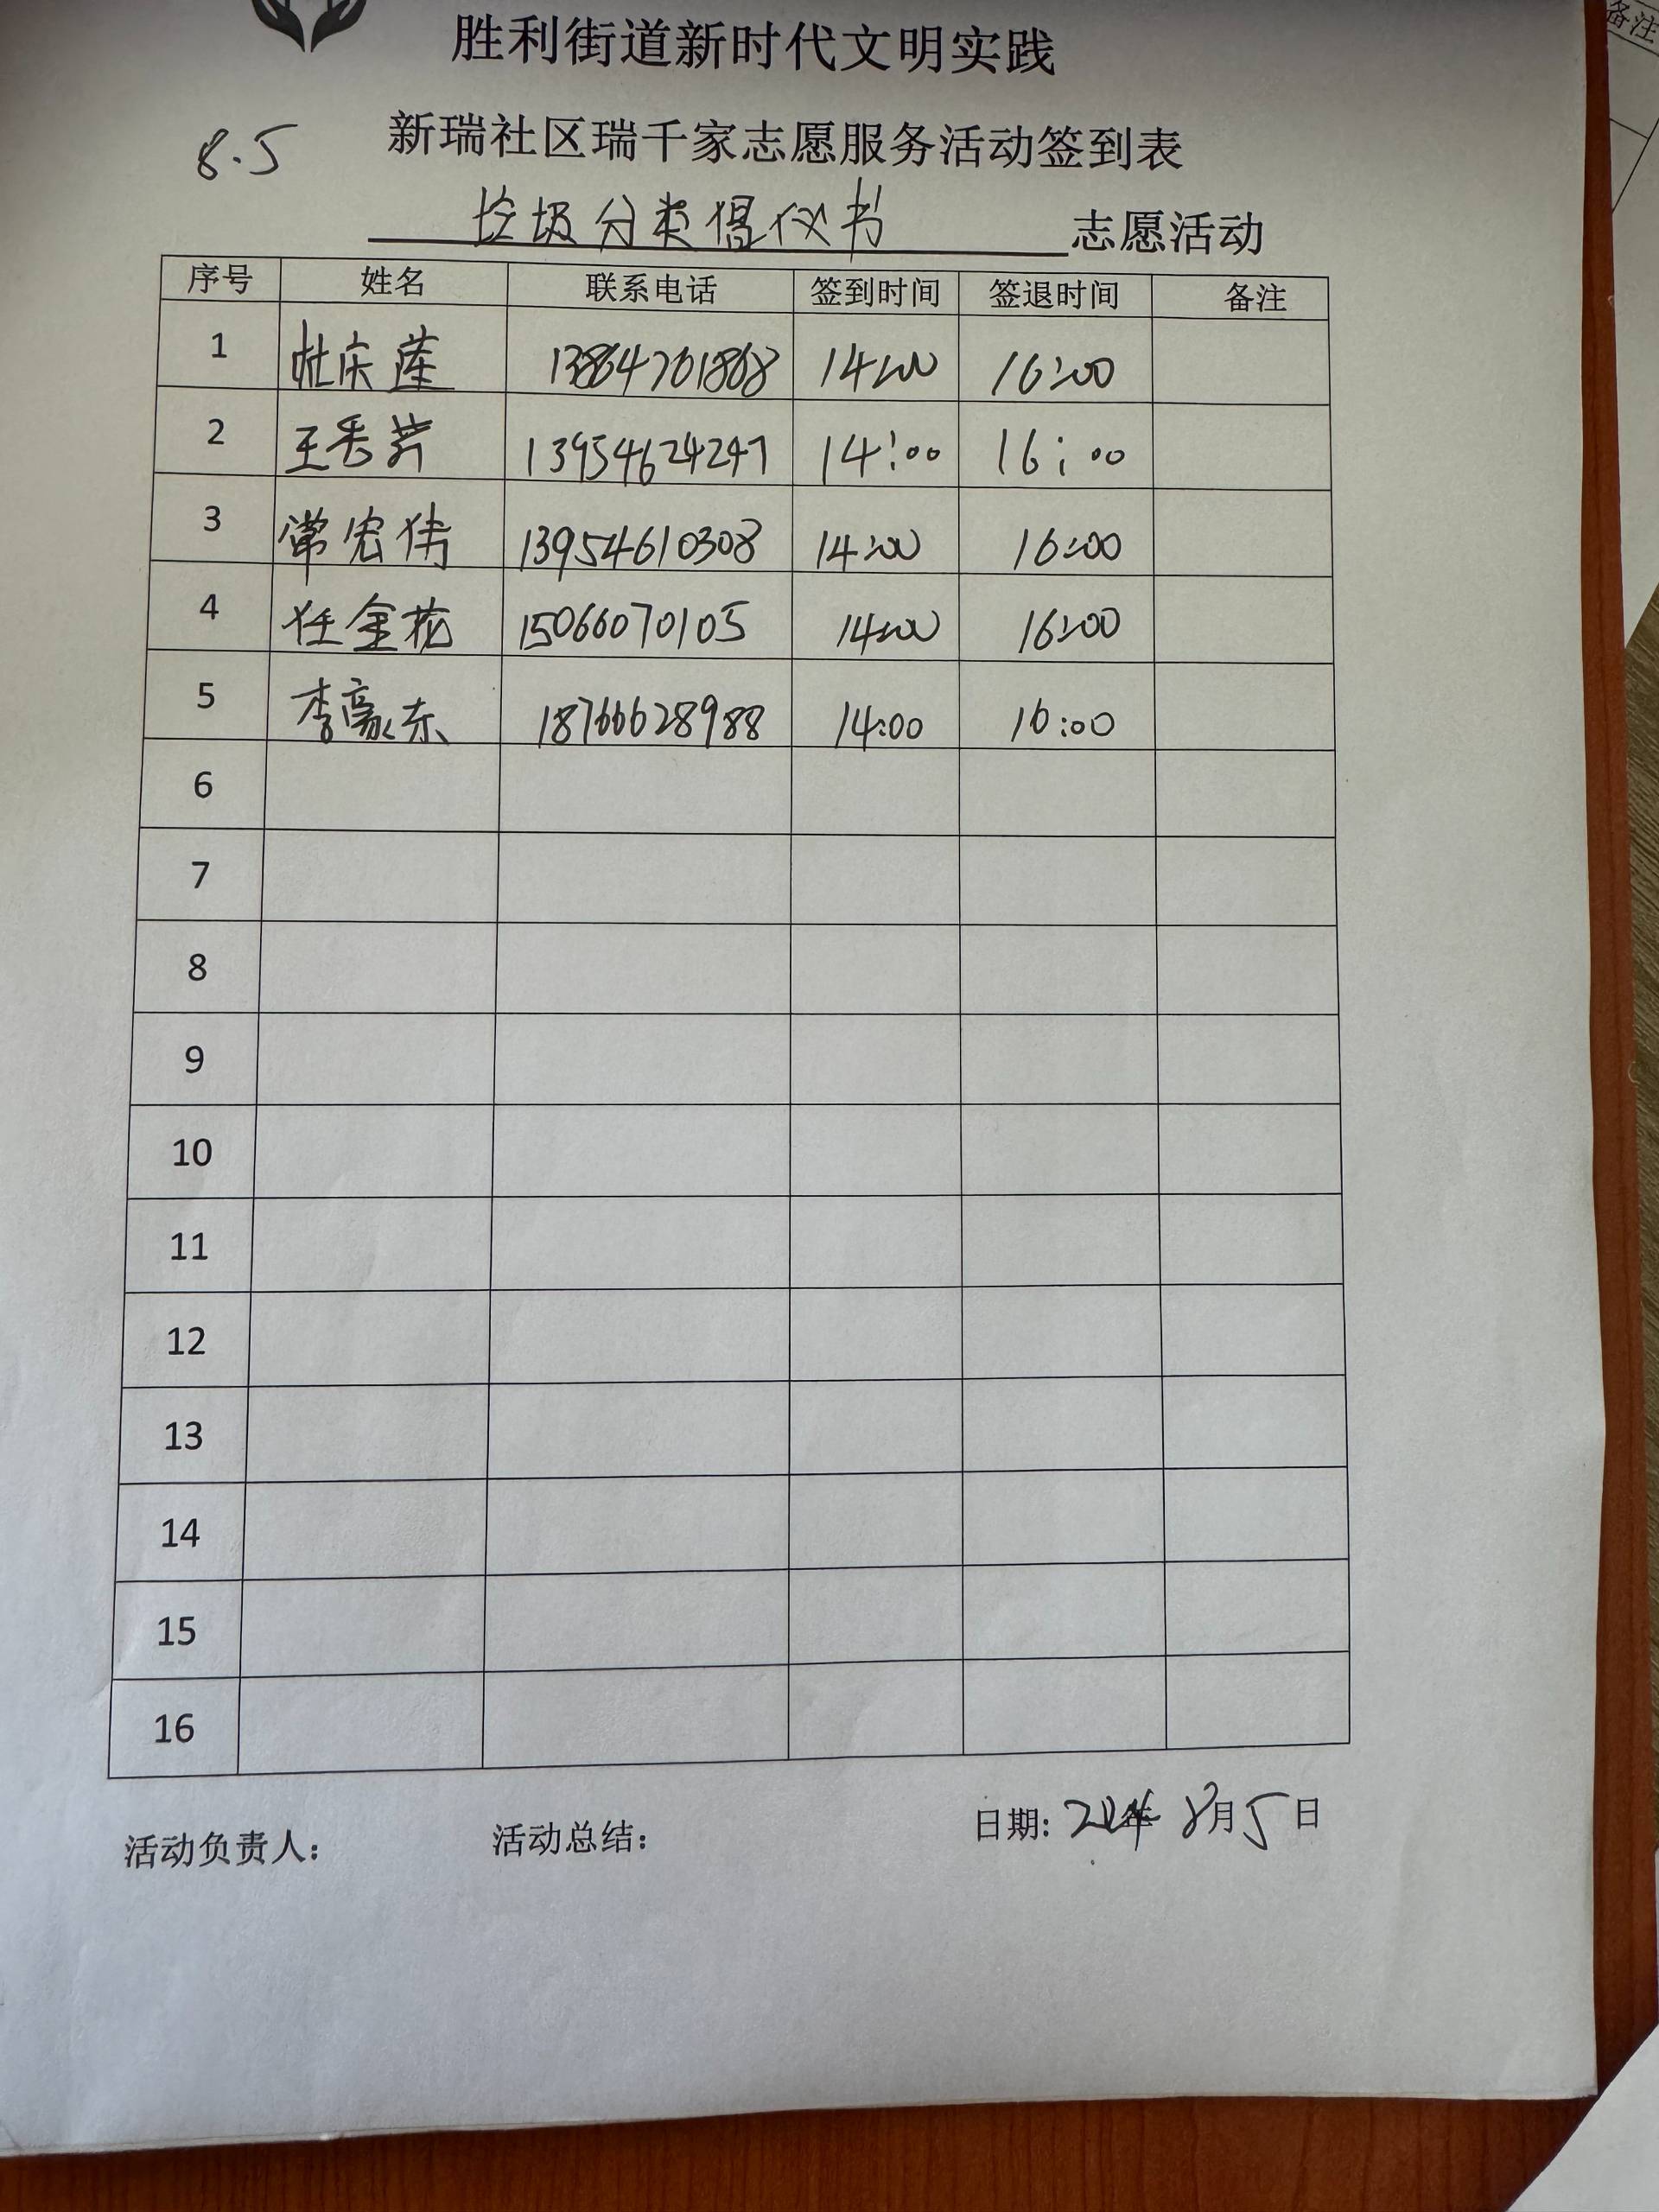 备注
胜利街道新时代文明实践
8.5 新瑞社区瑞千家志愿服务活动签到表
垃圾分类倡仪书 志愿活动
序号 姓名 联系电话 签到时间 签退时间 备注
1 杜庆莲 13864701868 14:00 16:00
2 王秀芹 13954624247 14:00 16:00
3 常宏伟 13954610308 14:00 16:00
4 任金花 15066070105 14:00 16:00
5 李豪东 18766628988 14:00 16:00
6
7
8
9
10
11
12
13
14
15
16
活动负责人: 活动总结: 日期: 24年 8月5日